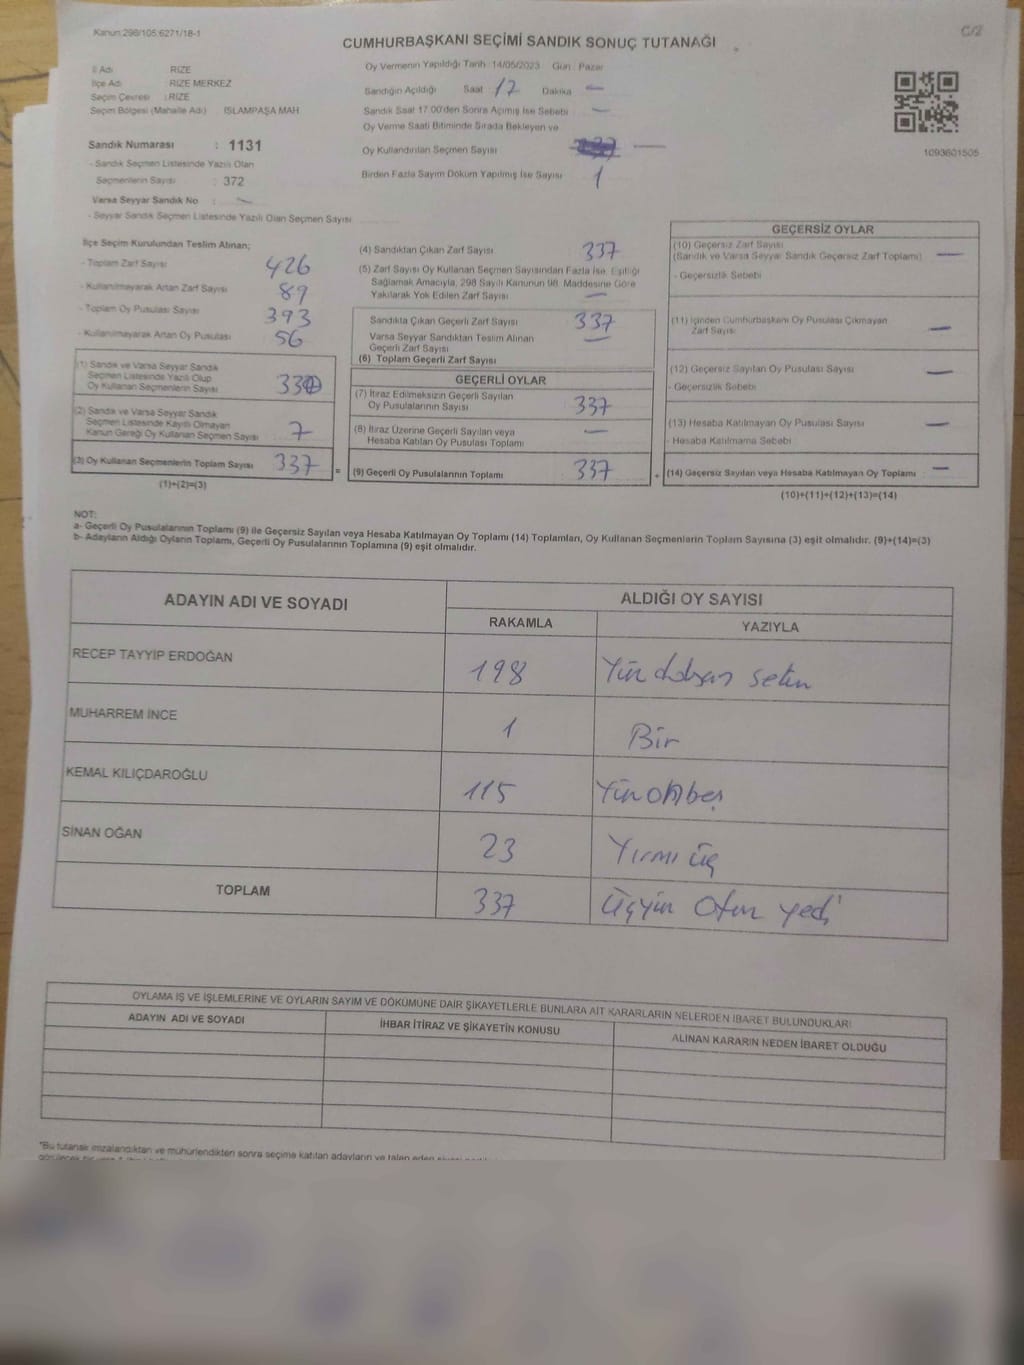 Kanun:298/105;6271/18-1
C/2
CUMHURBAŞKANI SEÇİMİ SANDIK SONUÇ TUTANAĞI
İl Adı RİZE
İlçe Adı RİZE MERKEZ
Seçim Çevresi : RİZE
Seçim Bölgesi (Mahalle Adı) İSLAMPAŞA MAH
Oy Vermenin Yapıldığı Tarih 14/05/2023 Gün : Pazar
Sandığın Açıldığı Saat 17 Dakika –
Sandık Saat 17:00'den Sonra Açılmış İse Sebebi –
Oy Verme Saati Bitiminde Sırada Bekleyen ve
Oy Kullandırılan Seçmen Sayısı –
Birden Fazla Sayım Döküm Yapılmış İse Sayısı 1
1093601505
Sandık Numarası : 1131
- Sandık Seçmen Listesinde Yazılı Olan
Seçmenlerin Sayısı : 372
Varsa Seyyar Sandık No : –
- Seyyar Sandık Seçmen Listesinde Yazılı Olan Seçmen Sayısı
İlçe Seçim Kurulundan Teslim Alınan;
- Toplam Zarf Sayısı 426
- Kullanılmayarak Artan Zarf Sayısı 89
- Toplam Oy Pusulası Sayısı 393
- Kullanılmayarak Artan Oy Pusulası 56
(1) Sandık ve Varsa Seyyar Sandık
Seçmen Listesinde Yazılı Olup
Oy Kullanan Seçmenlerin Sayısı 330
(2) Sandık ve Varsa Seyyar Sandık
Seçmen Listesinde Kayıtlı Olmayan
Kanun Gereği Oy Kullanan Seçmen Sayısı 7
(3) Oy Kullanan Seçmenlerin Toplam Sayısı 337 =
(1)+(2)=(3)
(4) Sandıktan Çıkan Zarf Sayısı 337
(5) Zarf Sayısı Oy Kullanan Seçmen Sayısından Fazla İse, Eşitliği
Sağlamak Amacıyla, 298 Sayılı Kanunun 98. Maddesine Göre
Yakılarak Yok Edilen Zarf Sayısı –
Sandıkta Çıkan Geçerli Zarf Sayısı 337
Varsa Seyyar Sandıktan Teslim Alınan –
Geçerli Zarf Sayısı
(6) Toplam Geçerli Zarf Sayısı
GEÇERLİ OYLAR
(7) İtiraz Edilmeksizin Geçerli Sayılan
Oy Pusulalarının Sayısı 337
(8) İtiraz Üzerine Geçerli Sayılan veya –
Hesaba Katılan Oy Pusulası Toplamı
(9) Geçerli Oy Pusulalarının Toplamı 337 +
GEÇERSİZ OYLAR
(10) Geçersiz Zarf Sayısı
(Sandık ve Varsa Seyyar Sandık Geçersiz Zarf Toplamı) –
- Geçersizlik Sebebi
(11) İçinden Cumhurbaşkanı Oy Pusulası Çıkmayan
Zarf Sayısı –
(12) Geçersiz Sayılan Oy Pusulası Sayısı –
- Geçersizlik Sebebi
(13) Hesaba Katılmayan Oy Pusulası Sayısı –
- Hesaba Katılmama Sebebi
(14) Geçersiz Sayılan veya Hesaba Katılmayan Oy Toplamı –
(10)+(11)+(12)+(13)=(14)
NOT:
a- Geçerli Oy Pusulalarının Toplamı (9) ile Geçersiz Sayılan veya Hesaba Katılmayan Oy Toplamı (14) Toplamları, Oy Kullanan Seçmenlerin Toplam Sayısına (3) eşit olmalıdır. (9)+(14)=(3)
b- Adayların Aldığı Oyların Toplamı, Geçerli Oy Pusulalarının Toplamına (9) eşit olmalıdır.
ADAYIN ADI VE SOYADI ALDIĞI OY SAYISI
RAKAMLA YAZIYLA
RECEP TAYYİP ERDOĞAN 198 Yüz doksan sekiz
MUHARREM İNCE 1 Bir
KEMAL KILIÇDAROĞLU 115 Yüz onbeş
SİNAN OĞAN 23 Yirmi üç
TOPLAM 337 Üçyüz Otuz yedi
OYLAMA İŞ VE İŞLEMLERİNE VE OYLARIN SAYIM VE DÖKÜMÜNE DAİR ŞİKAYETLERLE BUNLARA AİT KARARLARIN NELERDEN İBARET BULUNDUKLARI
ADAYIN ADI VE SOYADI İHBAR İTİRAZ VE ŞİKAYETİN KONUSU ALINAN KARARIN NEDEN İBARET OLDUĞU
"Bu tutanak imzalandıktan ve mühürlendikten sonra seçime katılan adayların ve talep eden siyasi